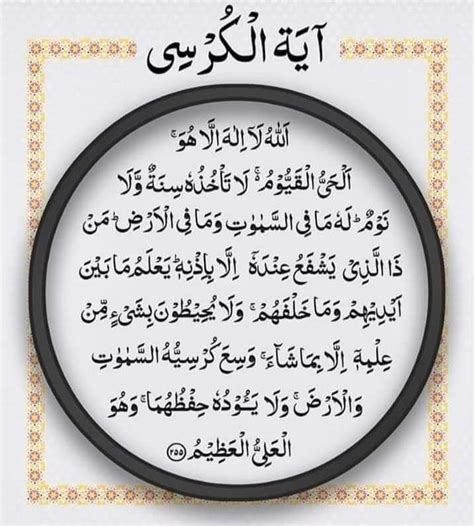 آيَة الْكُرْسِى
اَللّٰهُ لَاۤ اِلٰهَ اِلَّا هُوَۚ
اَلْحَیُّ الْقَیُّوْمُ ۚ۬ لَا تَاْخُذُهٗ سِنَةٌ وَّلَا
نَوْمٌؕ لَهٗ مَا فِی السَّمٰوٰتِ وَمَا فِی الْاَرْضِؕ مَنْ
ذَا الَّذِیْ یَشْفَعُ عِنْدَهٗۤ اِلَّا بِاِذْنِهٖؕ یَعْلَمُ مَا بَیْنَ
اَیْدِیْهِمْ وَمَا خَلْفَهُمْۚ وَلَا یُحِیْطُوْنَ بِشَیْءٍ مِّنْ
عِلْمِهٖۤ اِلَّا بِمَا شَآءَۚ وَسِعَ كُرْسِیُّهُ السَّمٰوٰتِ
وَالْاَرْضَۚ وَلَا یَـُٔوْدُهٗ حِفْظُهُمَاۚ وَهُوَ
الْعَلِیُّ الْعَظِیْمُ ۝۲۵۵